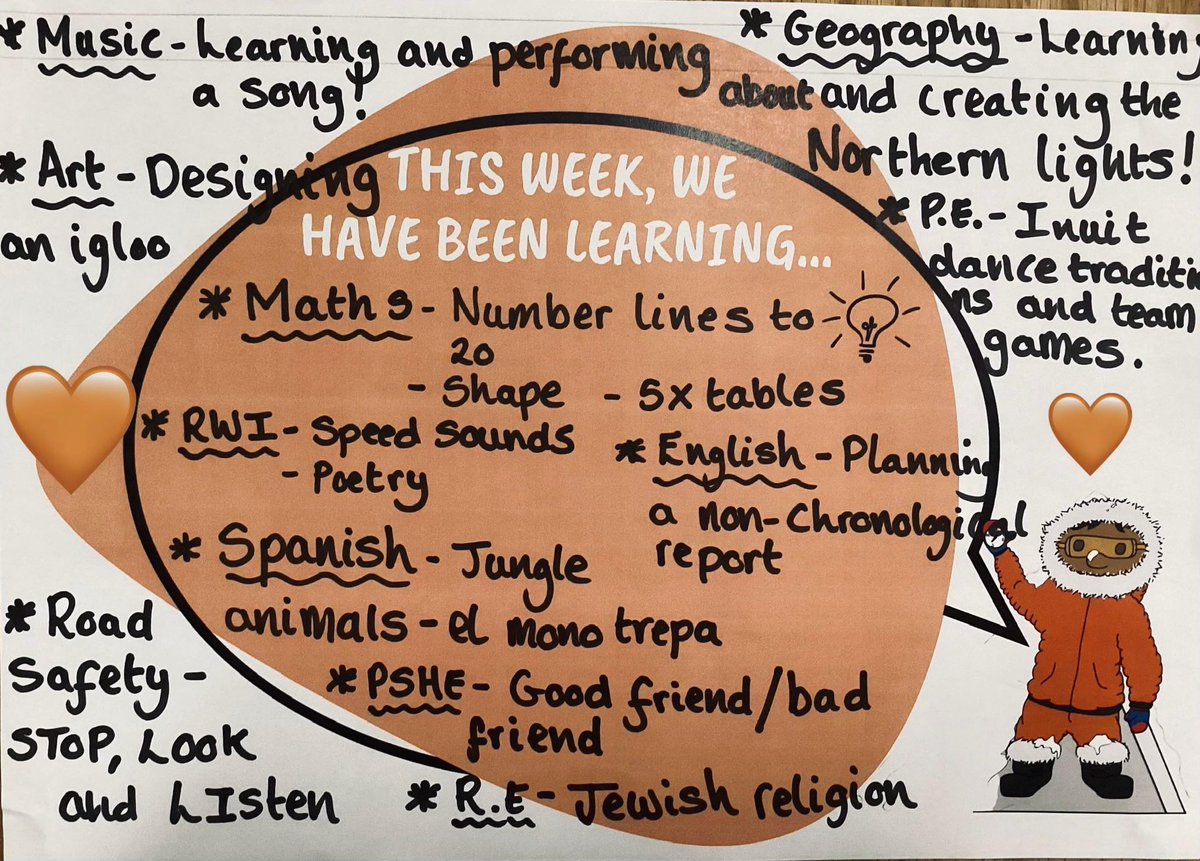 * Music - Learning and performing
a song!
* Geography - Learning
about and creating the
Northern lights!
* Art - Designing
an igloo
* P.E. - Inuit
dance traditi
ns and team
games.
THIS WEEK, WE
HAVE BEEN LEARNING...
* Maths - Number lines to
20
- Shape - 5x tables
* RWI - Speed Sounds
- Poetry
* English - Planning
a non-chronological
report
* Spanish - Jungle
animals - el mono trepa
* Road
Safety -
STOP, LOOK
and LISten
* PSHE - Good friend/bad
friend
* R.E - Jewish religion